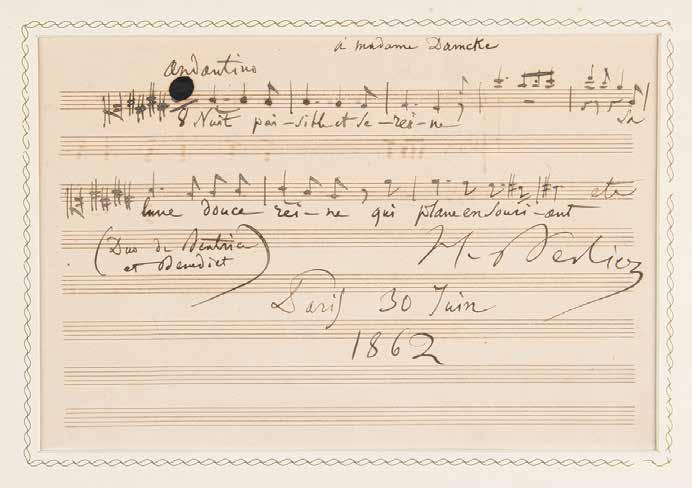 à madame Damcke
Andantino
8 Nuit pai-sible et se-rei-ne La
lune douce rei-ne qui plane en souri-ant etc
(Duo de Béatrice
et Bénédict)
H. Berlioz
Paris 30 Juin
1862